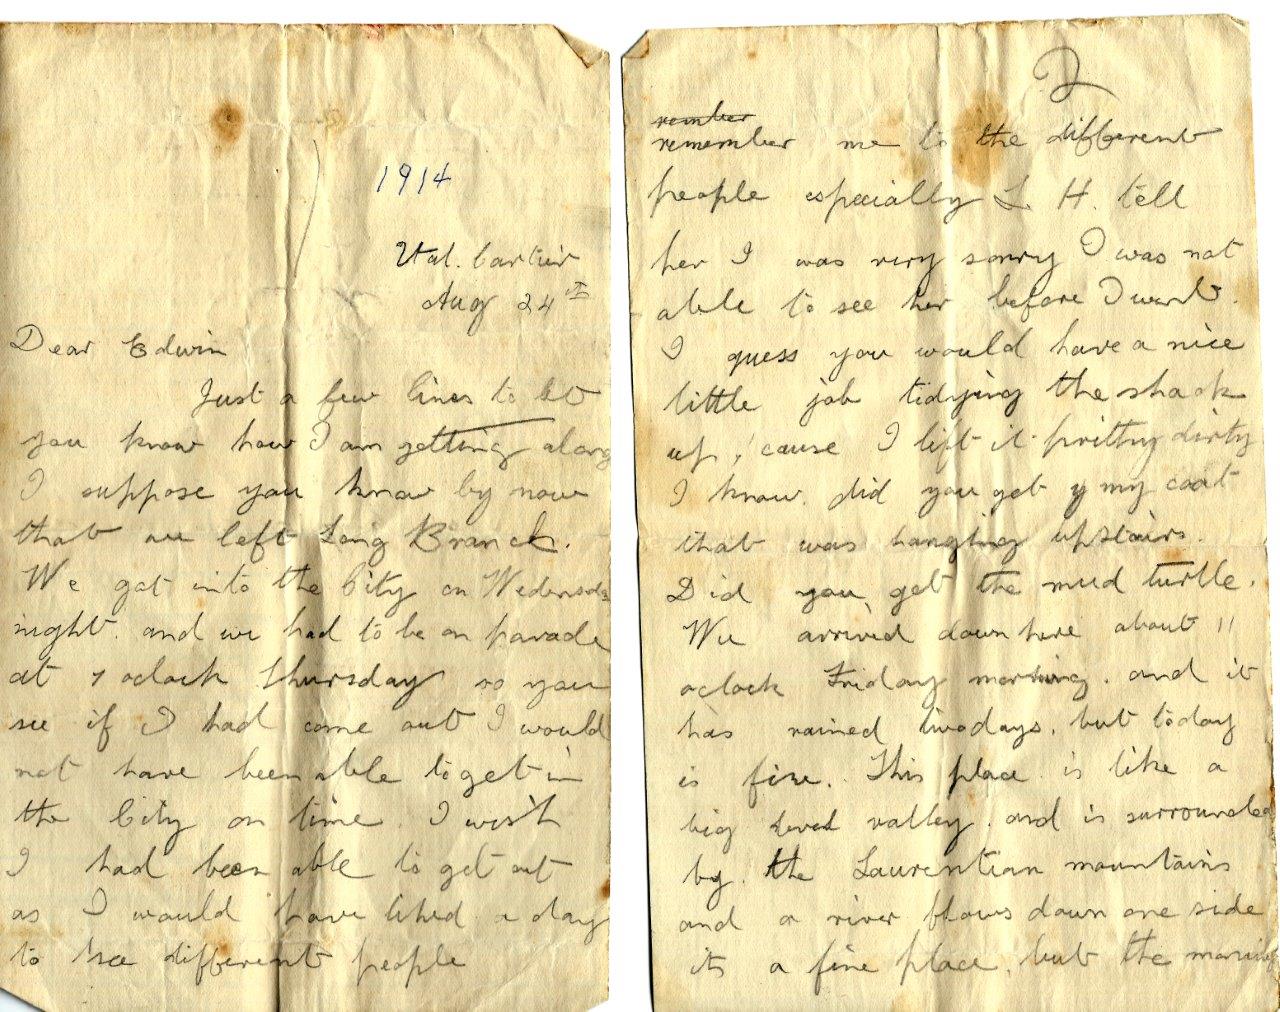 1914
Val. Cartier
Aug 24th
Dear Edwin
Just a few lines to let
you know how I am getting along
I suppose you know by now
that we left Long Branch.
We got into the City on Wednesda
night. and we had to be on parade
at 7 oclock Thursday so you
see if I had come out I would
not have been able to get in
the City on time. I wish
I had been able to get out
as I would have liked a day
to see different people
2
remember
remember me to the different
people especially L. H. tell
her I was very sorry I was not
able to see her before I went.
I guess you would have a nice
little job tidying the shack
up, 'cause I left it prittny dirty
I know. did you get y my coat
that was hanging upstairs.
Did you get the mud turtle.
We arrived down here about 11
oclock Friday morning. and it
has rained two days. but today
is fine. This place is like a
big level valley. and is surrounded
by. the Laurentian mountains
and a river flows down one side
its a fine place. but the morning